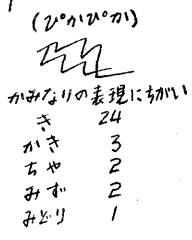 (ぴかぴか)
かみなりの表現にちがい
き 24
かき 3
ちゃ 2
みず 2
みどり 1